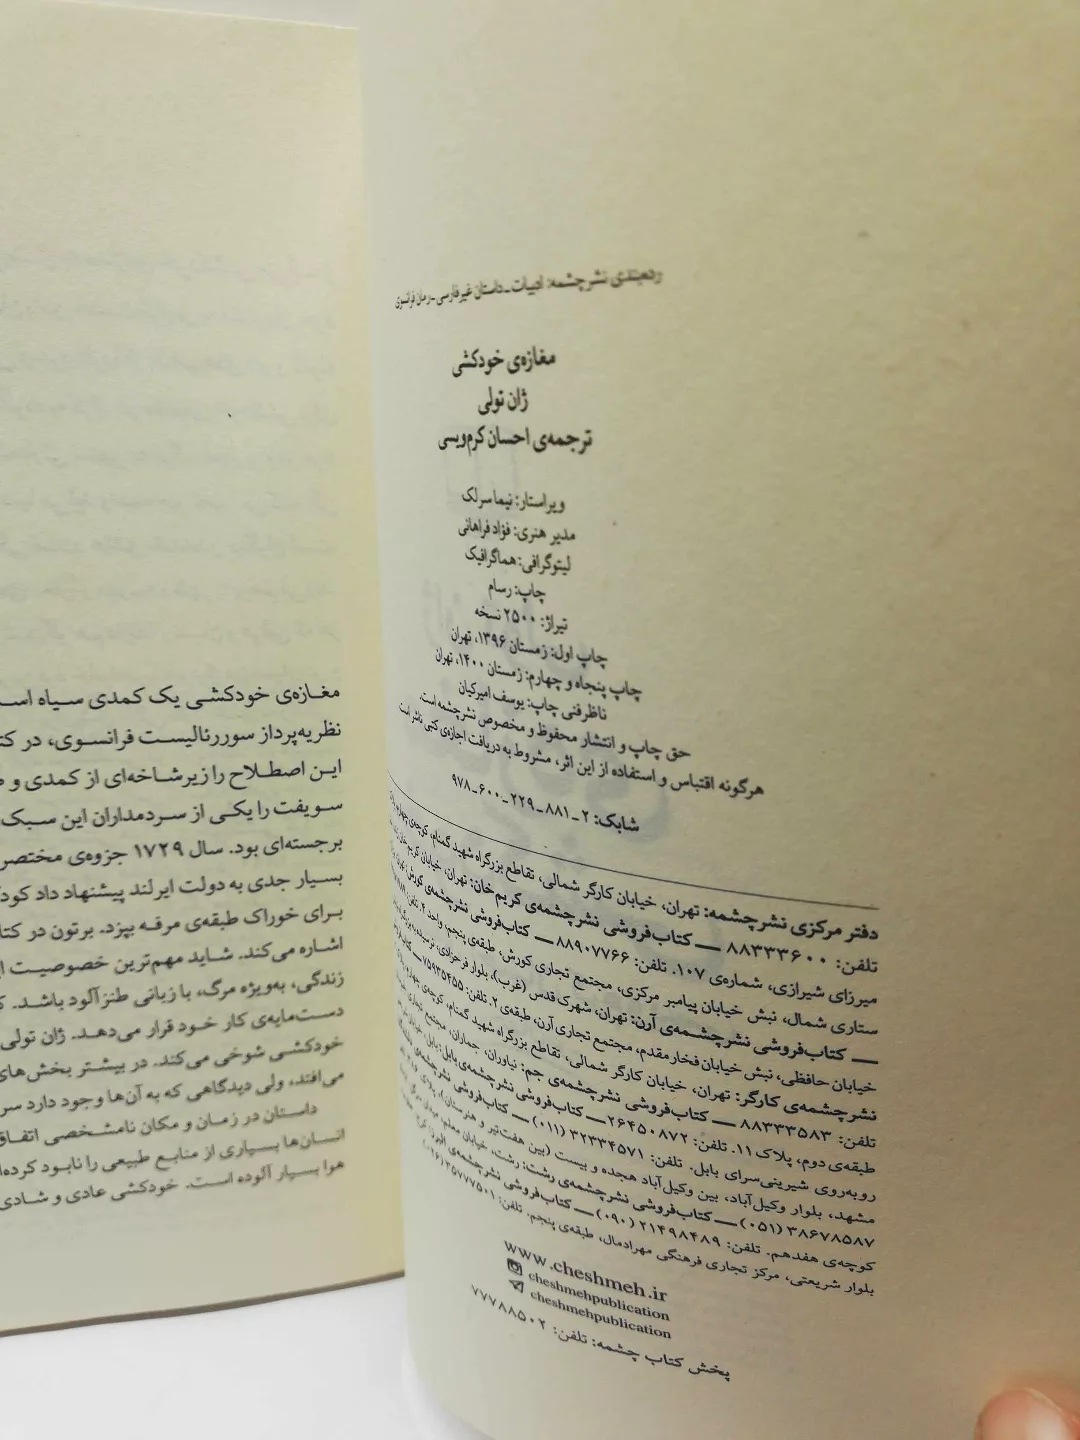 رده‌بندی نشرچشمه: ادبیات ـ داستان غیرفارسی ـ رمان فرانسوی
مغازه‌ی خودکشی
ژان تولی
ترجمه‌ی احسان کرم‌ویسی
ویراستار: نیما سرلک
مدیر هنری: فؤاد فراهانی
لیتوگرافی: هماگرافیک
چاپ: رسام
تیراژ: ۲۵۰۰ نسخه
چاپ اول: زمستان ۱۳۹۶، تهران
چاپ پنجاه و چهارم: زمستان ۱۴۰۰، تهران
ناظر فنی چاپ: یوسف امیرکیان
حق چاپ و انتشار محفوظ و مخصوص نشرچشمه است.
هرگونه اقتباس و استفاده از این اثر، مشروط به دریافت اجازه‌ی کتبی ناشر است
شابک: ۲ـ۸۸۱ـ۲۲۹ـ۶۰۰ـ۹۷۸
دفتر مرکزی نشرچشمه: تهران، خیابان کارگر شمالی، تقاطع بزرگراه شهید گمنام، کوچه‌ی چهارم
تلفن: ۸۸۳۳۳۶۰۰ — کتاب‌فروشی نشرچشمه‌ی کریم‌خان: تهران، خیابان کریم‌خان
میرزای شیرازی، شماره‌ی ۱۰۷. تلفن: ۸۸۹۰۷۷۶۶ — کتاب‌فروشی نشرچشمه‌ی کورش: تهران
ستاری شمال، نبش خیابان پیامبر مرکزی، مجتمع تجاری کورش، طبقه‌ی پنجم، واحد ۴. تلفن:
— کتاب‌فروشی نشرچشمه‌ی آرن: تهران، شهرک قدس (غرب)، بلوار فرحزادی، نرسیده به بزرگراه
خیابان حافظی، نبش خیابان فخارمقدم، مجتمع تجاری آرن، طبقه‌ی ۲. تلفن: ۷۵۹۳۵۴۵۵ —
نشرچشمه‌ی کارگر: تهران، خیابان کارگر شمالی، تقاطع بزرگراه شهید گمنام، کوچه‌ی چهارم
تلفن: ۸۸۳۳۳۵۸۳ — کتاب‌فروشی نشرچشمه‌ی جم: نیاوران، جماران، مجتمع
طبقه‌ی دوم، پلاک ۱۱. تلفن: ۲۶۴۵۰۸۷۲ — کتاب‌فروشی نشرچشمه‌ی بابل: بابل، خیابان
روبه‌روی شیرینی‌سرای بابل. تلفن: ۳۲۳۳۴۵۷۱ (۰۱۱) — کتاب‌فروشی نشرچشمه‌ی
مشهد، بلوار وکیل‌آباد، بین وکیل‌آباد هجده و بیست (بین هفت‌تیر و هنرستان)، پلاک
۳۸۶۷۸۵۸۷ (۰۵۱) — کتاب‌فروشی نشرچشمه‌ی رشت: رشت، خیابان معلم، میدان
کوچه‌ی هفدهم. تلفن: ۲۱۴۹۸۴۸۹ (۰۹۰) — کتاب‌فروشی نشرچشمه‌ی البرز: کرج
بلوار شریعتی، مرکز تجاری فرهنگی مهرادمال، طبقه‌ی پنجم. تلفن: ۳۵۷۷۷۵۰۱ (۰۲۶)
www.cheshmeh.ir
cheshmehpublication
cheshmehpublication
پخش کتاب چشمه: تلفن: ۷۷۷۸۸۵۰۲
مغازه‌ی خودکشی یک کمدی سیاه
نظریه‌پرداز سوررئالیست فرانسوی، در
این اصطلاح را زیرشاخه‌ای از کمدی و
سویفت را یکی از سردمداران این سبک
برجسته‌ای بود. سال ۱۷۲۹ جزوه‌ی مختصر
بسیار جدی به دولت ایرلند پیشنهاد داد
برای خوراک طبقه‌ی مرفه بپزد. برتون در
اشاره می‌کند. شاید مهم‌ترین خصوصیت
زندگی، به‌ویژه مرگ، با زبانی طنزآلود باشد.
دست‌مایه‌ی کار خود قرار می‌دهد. ژان تولی
خودکشی شوخی می‌کند. در بیشتر بخش‌های
می‌افتد، ولی دیدگاهی که به آن‌ها وجود دارد
داستان در زمان و مکان نامشخصی اتفاق
انسان‌ها بسیاری از منابع طبیعی را نابود
هوا بسیار آلوده است. خودکشی عادی و شادی